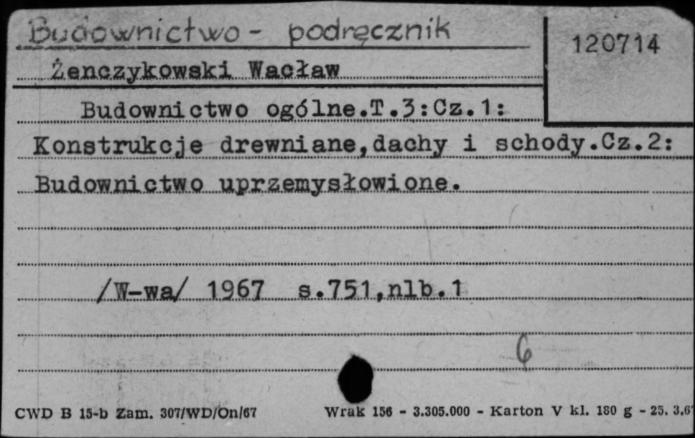 Budownictwo - podręcznik
120714
Żenczykowski Wacław
Budownictwo ogólne.T.3:Cz.1:
Konstrukcje drewniane,dachy i schody.Cz.2:
Budownictwo uprzemysłowione.
/W-wa/ 1967 s.751,nlb.1
6
CWD B 15-b Zam. 307/WD/On/67 Wrak 156 - 3.305.000 - Karton V kl. 180 g - 25. 3.67